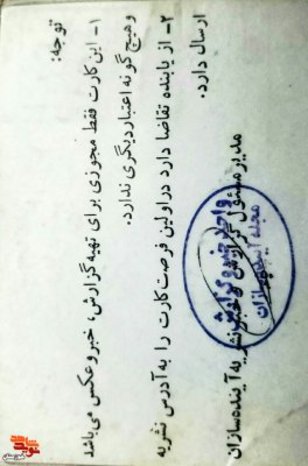 توجه:
۱- این کارت فقط مجوزی برای تهیه گزارش، خبر و عکس می‌باشد
و هیچ گونه اعتبار دیگری ندارد.
۲- از یابنده تقاضا دارد در اولین فرصت کارت را به آدرس نشریه
ارسال دارد.
مدیر مسئول گزارش و خبر نشریه آینده سازان
واحد خبر و گزارش
مجله آینده سازان